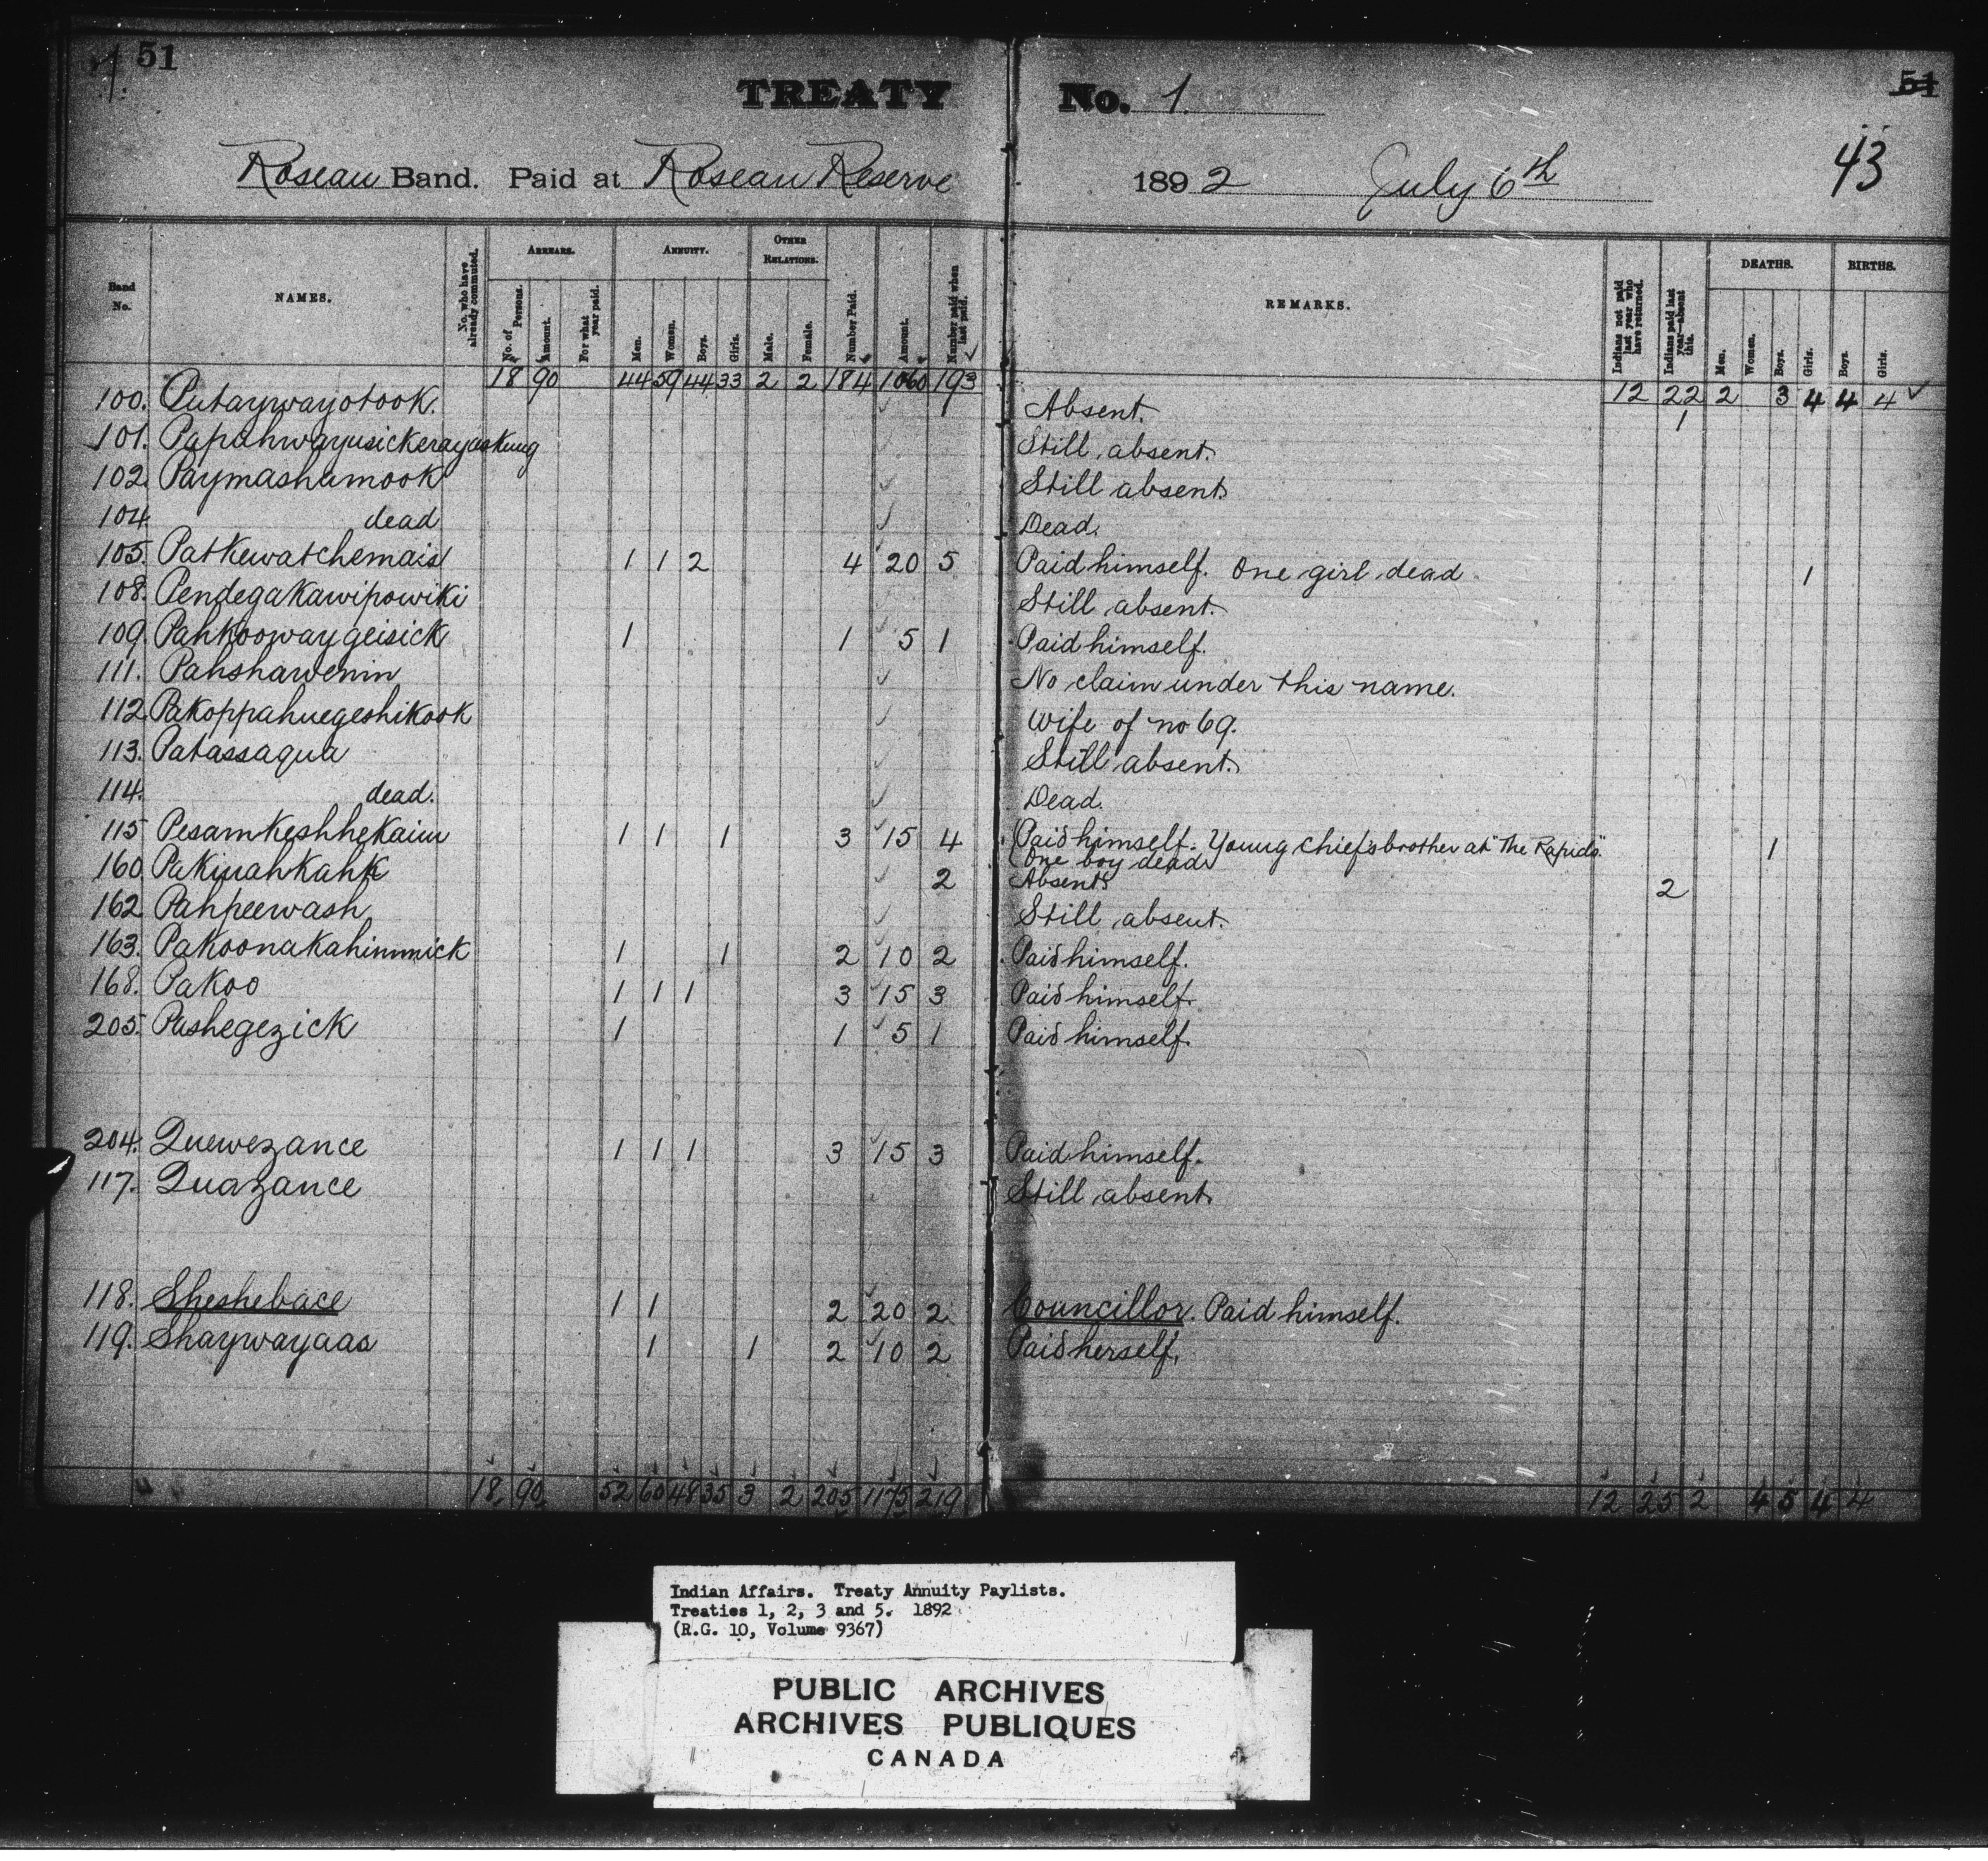 51
51
TREATY No. 1.
43
Roseau Band. Paid at Roseau Reserve 1892 July 6th
Band No.
NAMES.
No. who have already commuted.
ARREARS.
No. of Persons.
Amount.
For what year paid.
ANNUITY.
Men.
Women.
Boys.
Girls.
OTHER RELATIONS.
Male.
Female.
Number Paid.
Amount.
Number paid when last paid.
REMARKS.
Indians not paid last year who have returned.
Indians paid last year—absent this.
DEATHS.
Men.
Women.
Boys.
Girls.
BIRTHS.
Boys.
Girls.
18 90 44 59 44 33 2 2 184 1060 193 12 22 2 3 4 4 4
100. Putaywayotook. 1 Absent. 1
101. Papahwayusickerayaskung Still absent.
102. Paymashamook Still absent.
104. dead Dead.
105. Patkewatchemais 1 1 2 4 20 5 Paid himself. One girl dead 1
108. Pendegakawipowiki Still absent.
109. Pahkoowaygeisick 1 1 5 1 Paid himself.
111. Pahshawenin No claim under this name.
112. Pakoppahuegeshikook Wife of no 69.
113. Patassaqua Still absent.
114. dead. Dead.
115 Pesamkeshhekaim 1 1 1 3 15 4 Paid himself. Young chief's brother at "The Rapids". 1
One boy dead
160. Pakinahkahk 2 Absent 2
162. Pahpeewash Still absent.
163. Pakoonakahinmick 1 1 2 10 2 Paid himself.
168. Pakoo 1 1 1 3 15 3 Paid himself.
205. Pashegezick 1 1 5 1 Paid himself.
204. Quewezance 1 1 1 3 15 3 Paid himself.
117. Quazance Still absent.
118. Sheshebace 1 1 2 20 2 Councillor. Paid himself.
119. Shaywayaas 1 1 2 10 2 Paid herself.
18 90 52 60 48 35 3 2 205 1175 219 12 25 2 4 5 4 4
Indian Affairs. Treaty Annuity Paylists.
Treaties 1, 2, 3 and 5. 1892
(R.G. 10, Volume 9367)
PUBLIC ARCHIVES
ARCHIVES PUBLIQUES
CANADA